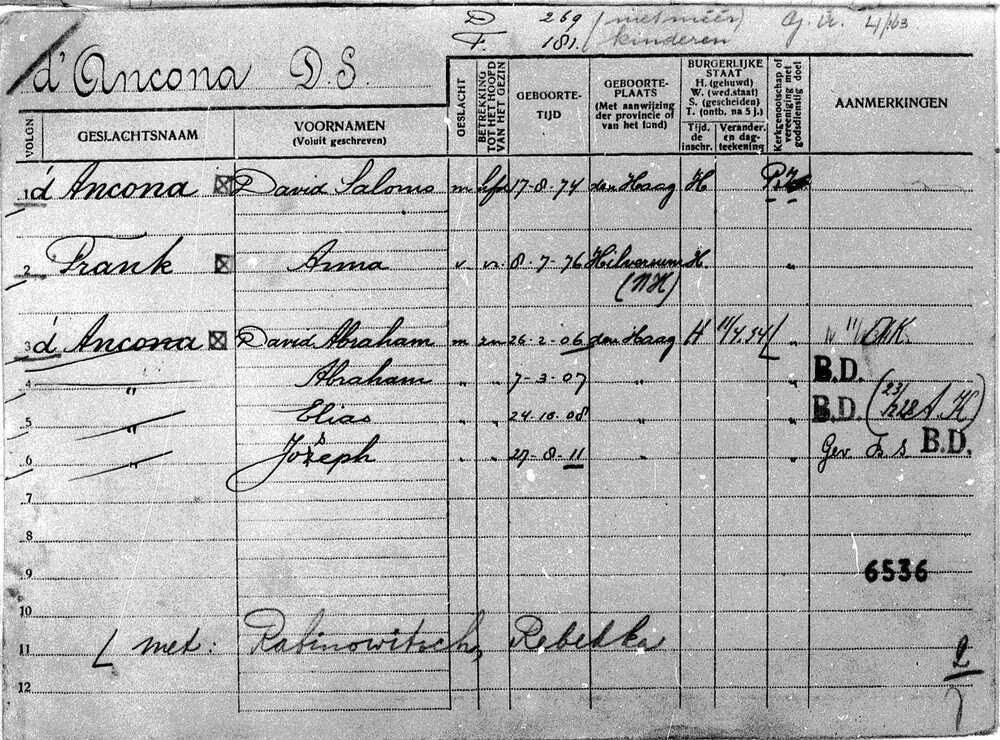 D 269 (niet méér)
F. 181. kinderen
d'Ancona D.S.
VOLGN.
GESLACHTSNAAM
VOORNAMEN
(Voluit geschreven)
GESLACHT
BETREKKING TOT HET HOOFD VAN HET GEZIN
GEBOORTE-
TIJD
GEBOORTE-
PLAATS
(Met aanwijzing
der provincie of
van het land)
BURGERLIJKE
STAAT
H. (gehuwd)
W. (wed.staat)
S. (gescheiden)
T. (ontb. na 5 j.)
Tijd.
de
inschr.
Verander.
en dag-
teekening
Kerkgenootschap of vereeniging met godsdienstig doel
AANMERKINGEN
1 d'Ancona David Saloms m hfd 17-8-74 den Haag H
2 Frank Anna v. vr. 8-7-76 Hilversum H. "
(NH)
3 d'Ancona David Abraham m zn 26-2-06 den Haag H 11/4.34 [ "
4 " Abraham " " 7-3-07 " " B.D.
5 " Elias " " 24-10-08 " " B.D.
6 " Joseph " " 27-8-11 " " B.D.
7
8
9 6536
10
11 [ met: Rabinowitsch, Rebekka 2
12